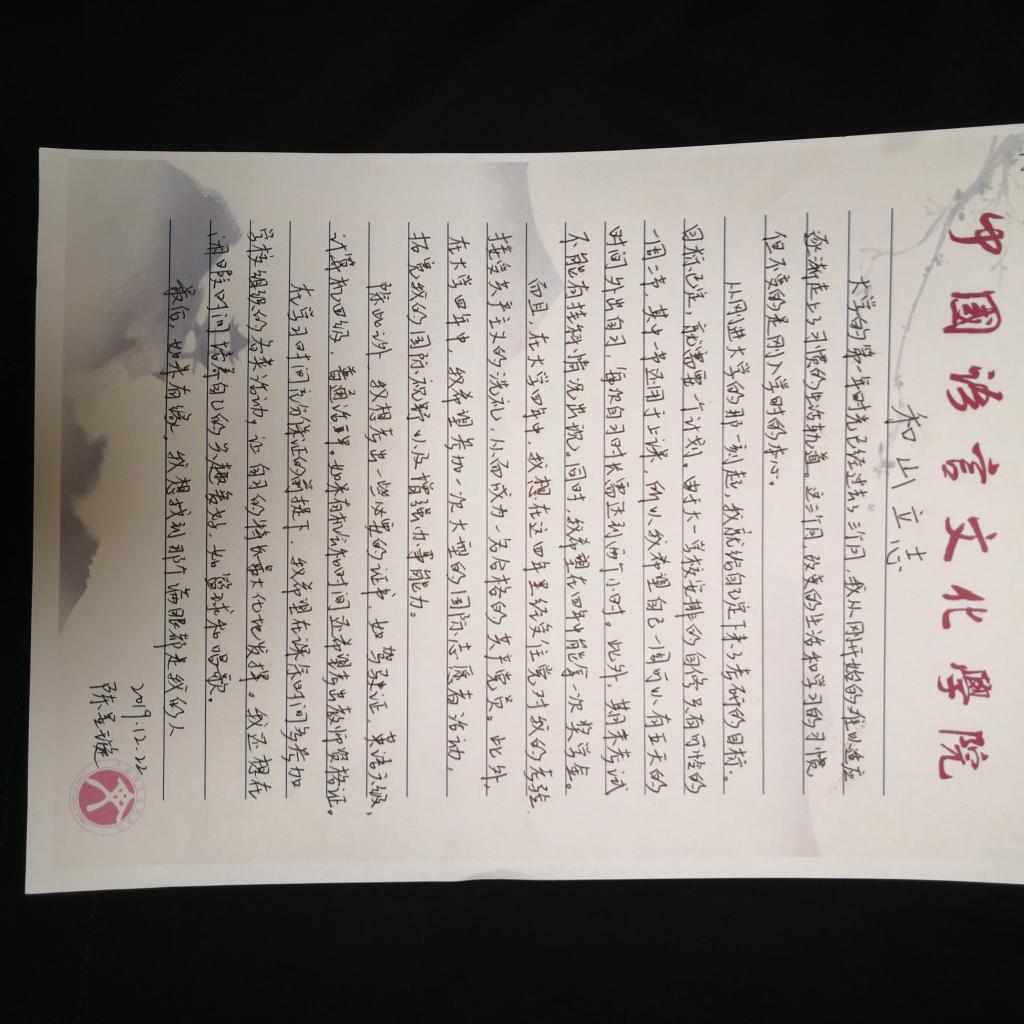 中國語言文化學院
和山立志
大学的第一年时光已经过去了三个月，我从刚开始的难以适应
逐渐走上了习惯的生活轨道。这三个月，改变的生活和学习的习惯，
但不变的是刚入学时的本心。
从刚进大学的那一刻起，我就给自己定下来了考研的目标。
目标已定，就需要一个计划。由于大一学校安排的自修只有可怜的
一周二节，其中一节还用于上课，所以我希望自己一周可以有五天的
时间外出自习，每次自习时长需达到两个小时。此外，期末考试
不能有挂科情况出现。同时，我希望在四年中能拿一次奖学金。
而且，在大学四年中，我想在这四年里经受住党对我的考验，
接受共产主义的洗礼，从而成为一名合格的共产党员。此外，
在大学四年中，我希望参加一次大型的国际志愿者活动，
拓宽我的国际视野以及增强办事能力。
除此以外，我想考出一些必要的证书，如驾驶证，英语六级，
计算机四级，普通话二甲。如果有机会和时间还希望考出教师资格证。
在学习时间充分保证的前提下，我希望在课余时间多参加
学校组织的各类活动。让自己的特长最大化地发挥。我还想在
闲暇时间培养自己的兴趣爱好，如篮球和唱歌。
最后，如果有缘，我想找到那个满眼都是我的人
2019.12.22